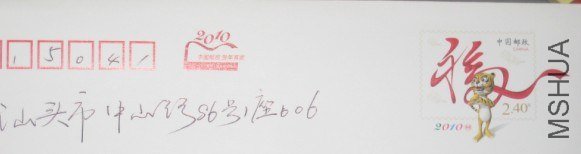 15041
2010
中国邮政 贺年有奖
汕头市中山路56号1座606
中国邮政
CHINA
福
2.40元
2010
MSHUA